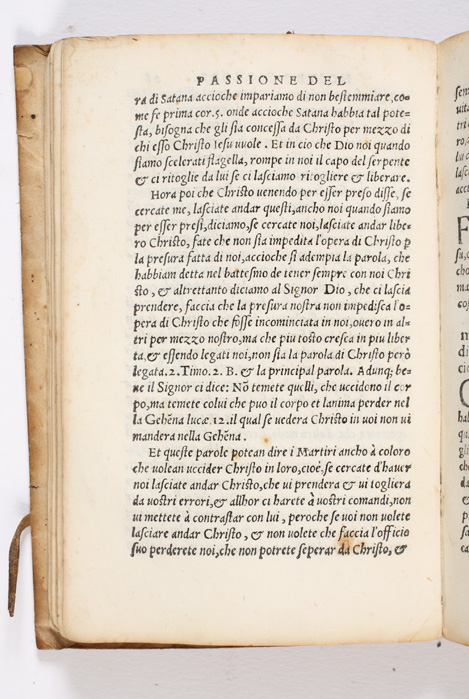 PASSIONE DEL
ra di Satana accioche impariamo di non bestemmiare, co-
me se prima cor.5. onde accioche Satana habbia tal pote-
sta, bisogna che gli sia concessa da Christo per mezzo di
chi esso Christo Iesu vuole. Et in cio che Dio noi quando
siamo scelerati flagella, rompe in noi il capo del serpente
& ci ritoglie da lui se ci lasciamo ritogliere & liberare.
Hora poi che Christo uenendo per esser preso disse, se
cercate me, lasciate andar questi, ancho noi quando siamo
per esser presi, diciamo, se cercate noi, lasciate andar libe
ro Christo, fate che non sia impedita l'opera di Christo p
la presura fatta di noi, accioche si adempia la parola, che
habbiam detta nel battesmo de tener sempre con noi Chri
sto, & altrettanto diciamo al Signor Dio, che ci lascia
prendere, faccia che la presura nostra non impedisca l'o-
pera di Christo che fosse incominciata in noi, ouero in al-
tri per mezzo nostro, ma che piu tosto cresca in piu liber
ta, & essendo legati noi, non sia la parola di Christo però
legata. 2. Timo. 2. B. & la principal parola. Adunq; be-
ne il Signor ci dice: Nō temete quelli, che uccidono il cor
po, ma temete colui che puo il corpo et lanima perder nel
la Gehēna lucæ.12. il qual se uedera Christo in uoi non ui
mandera nella Gehēna.
Et queste parole potean dire i Martiri ancho à coloro
che uolean uccider Christo in loro, cioè, se cercate d'hauer
noi lasciate andar Christo, che ui prendera & ui togliera
da uostri errori, & allhor ci harete à uostri comandi, non
ui mettete à contrastar con lui, peroche se uoi non uolete
lasciare andar Christo, & non uolete che faccia l'officio
suo perderete noi, che non potrete seperar da Christo, &